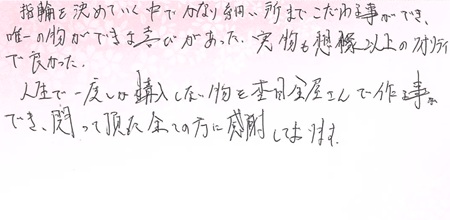 指輪を決めていく中でかなり細い所までこだわる事ができ、
唯一の物ができる喜びがあった。実物も想像以上のクオリティ
で良かった。
人生で一度しか購入しない物を杢目金屋さんで作る事が
でき、関って頂いた全ての方に感謝しております。